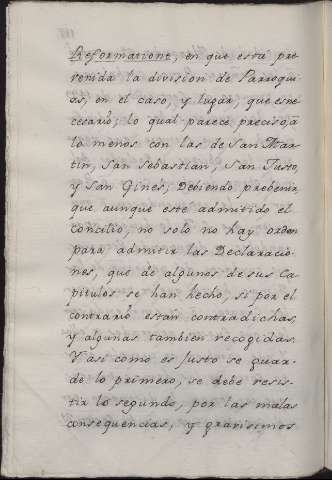 Reformatione, en que está pre
venida la division de Parroqui
as, en el caso, y lugar, que es ne
cesario; lo qual parece preciso, á
lo menos con las de San Mar
tin, San Sebastian, San Justo,
y San Gines; Debiendo prebenir,
que aunque esté admitido el
Concilio, no solo no hay orden
para admitir las Declaracio-
nes, que de algunos de sus Ca
pitulos se han hecho, si por el
contrario estan contradichas,
y algunas tambien recogidas.
Y asi como es justo se guar-
de lo primero, se debe resis-
tir lo segundo, por las malas
consequencias, y gravisimos